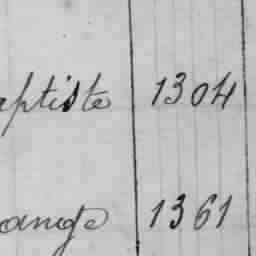 aptiste 1304
ange 1361